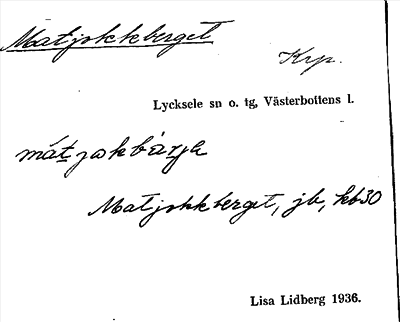 Matjokkberget
Krp.
Lycksele sn o. tg, Västerbottens l.
mát jokbärja
Matjokkberget, jb, kb30
Lisa Lidberg 1936.